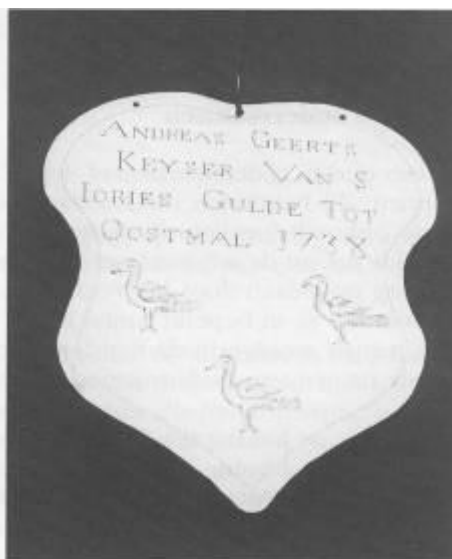 ANDREAS GEERTS
KEYSER VAN S
IORIES GULDE TOT
OOSTMAL 1738